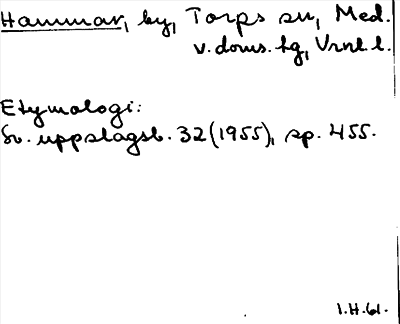 Hammar, by, Torps sn, Med.
v. doms. hg, Vrnl. l.
Etymologi:
Sv. uppslagsb. 32 (1955), sp. 455.
1.H.61.